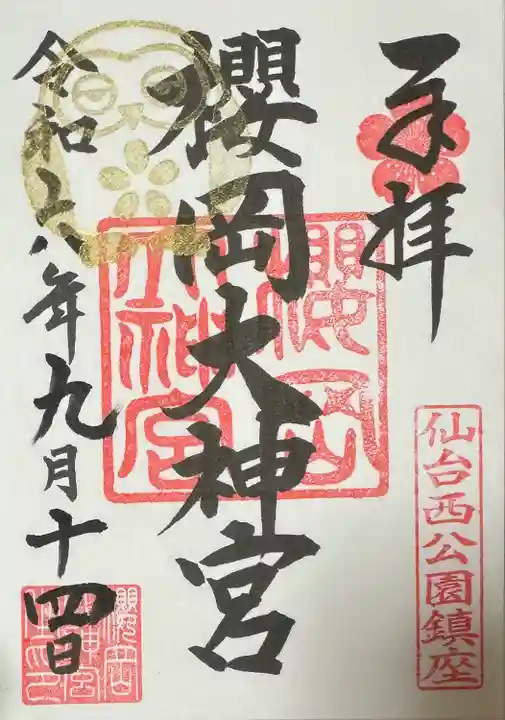 奉拝
仙台西公園鎮座
櫻岡大神宮
櫻岡大神宮
令和六年九月十四日